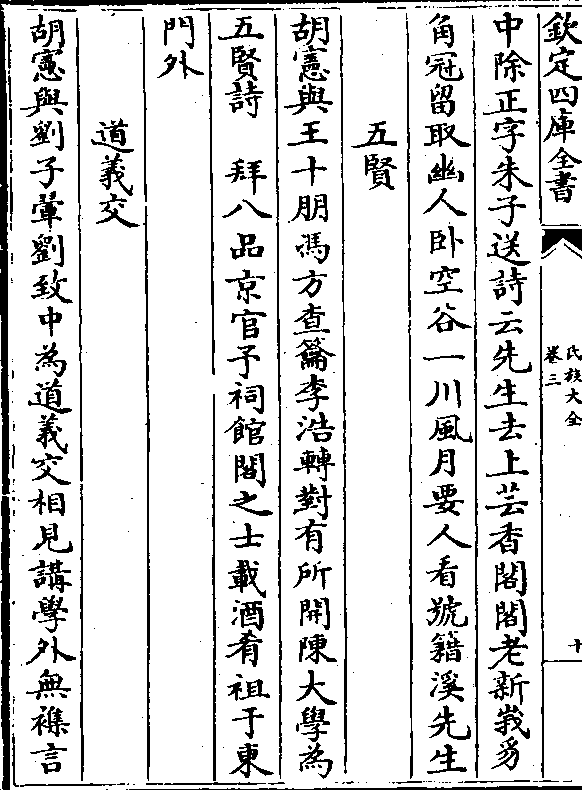 欽定四庫全書
氏族大全
卷三
十
中除正字朱子送詩云先生去上芸香閣閣老新峩豸
角冠留取幽人卧空谷一川風月要人看號籍溪先生
五賢
胡憲與王十朋馮方查籥李浩轉對有所開陳大學為
五賢詩　拜八品京官予祠館閣之士載酒肴祖于東
門外
道義交
胡憲與劉子翬劉致中為道義交相見講學外無襍言